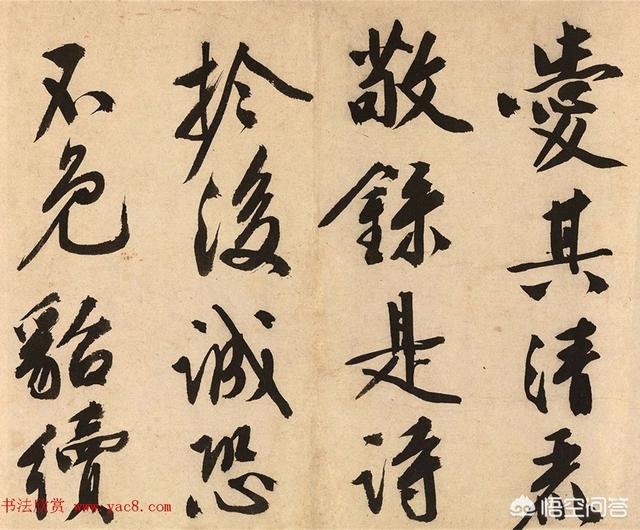 愛其清秀
敬錄是詩
於後誠恐
不免貂續
书法欣赏 www.yac8.com
悟空问答